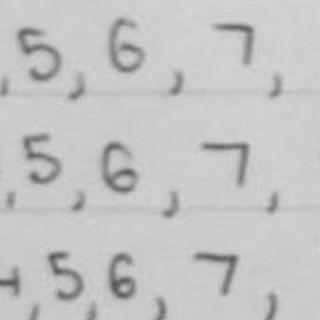 , 5, 6, 7,
, 5, 6, 7,
4, 5, 6, 7,